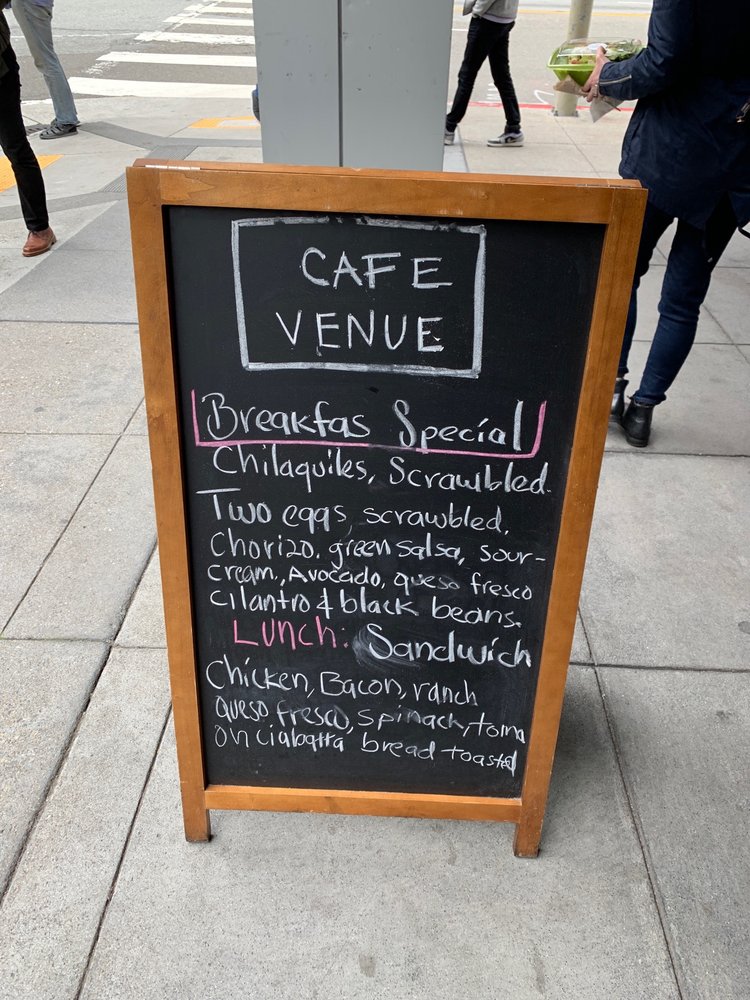 CAFE
VENUE
Breakfas Special
Chilaquiles, Scrawbled.
Two eggs, scrawbled,
Chorizo, green salsa, sour-
cream, Avocado, queso fresco
cilantro & black beans.
Lunch: Sandwich
Chicken, Bacon, ranch
queso fresco, spinack, toma
on ciabqtta bread toasted